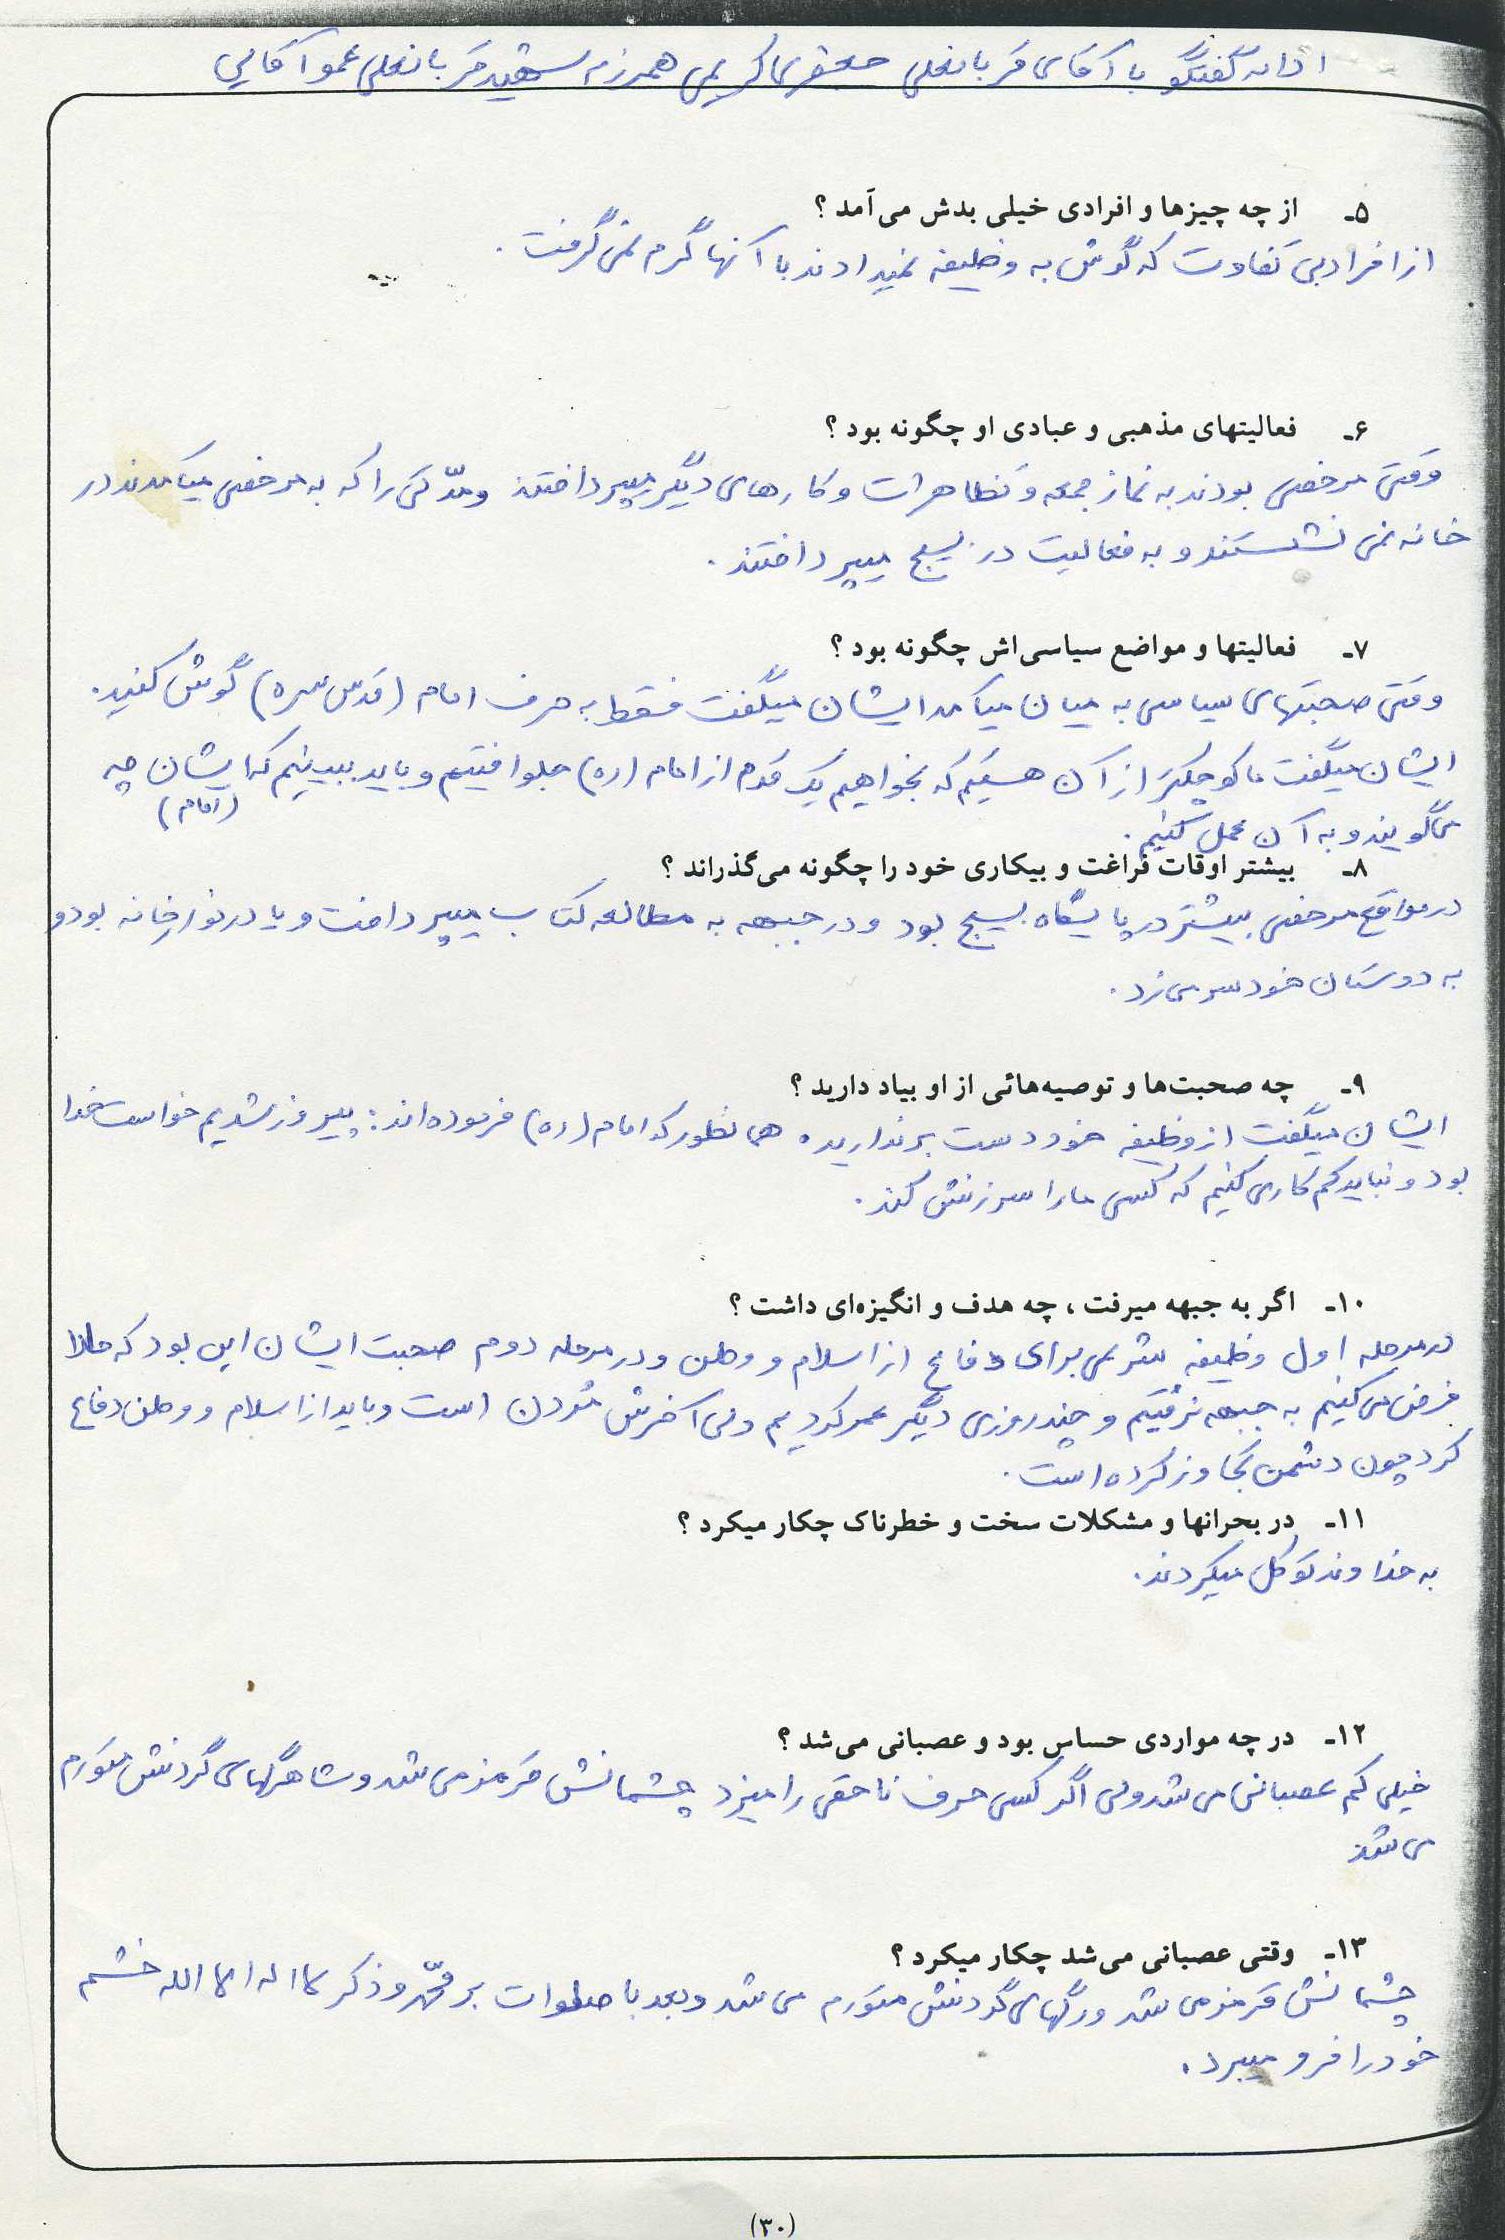 ادامه گفتگو با آقای قربانعلی جعفری کریمی همرزم شهید قربانعلی عموآقایی
۵ـ از چه چیزها و افرادی خیلی بدش می‌آمد ؟
از افراد بی تفاوت که گوش به وظیفه نمیدادند با آنها گرم نمی گرفت .
۶ـ فعالیتهای مذهبی و عبادی او چگونه بود ؟
وقتی مرخصی بودند به نماز جمعه و تظاهرات و کارهای دیگر میپرداختند و مدّتی را که به مرخصی میآمدند در
خانه نمی نشستند و به فعالیت در بسیج میپرداختند .
۷ـ فعالیتها و مواضع سیاسی‌اش چگونه بود ؟
وقتی صحبتهای سیاسی به میان میآمد ایشان میگفت فقط به حرف امام (قدس سره) گوش کنید.
ایشان میگفت ما کوچکتر از آن هستیم که بخواهیم یک قدم از امام (ره) جلو افتیم و باید ببینیم که ایشان چه
(امام)
می گویند و به آن عمل کنیم .
۸ـ بیشتر اوقات فراغت و بیکاری خود را چگونه می‌گذراند ؟
در مواقع مرخصی بیشتر در پایگاه بسیج بود و در جبهه به مطالعه کتاب میپرداخت و یا در نوارخانه بود و
به دوستان خود سر می زد .
۹ـ چه صحبت‌ها و توصیه‌هائی از او بیاد دارید ؟
ایشان میگفت از وظیفه خود دست برندارید . همانطور که امام (ره) فرموده‌اند : پیروز شدیم خواست خدا
بود و نباید کم کاری کنیم که کسی ما را سرزنش کند .
۱۰ـ اگر به جبهه میرفت ، چه هدف و انگیزه‌ای داشت ؟
در مرحله اول وظیفه شرعی برای دفاع از اسلام و وطن و در مرحله دوم صحبت ایشان این بود که حالا
فرض می کنیم به جبهه نرفتیم و چند روزی دیگر عمر کردیم ولی آخرش مُردن است و باید از اسلام و وطن دفاع
کرد چون دشمن تجاوز کرده است .
۱۱ـ در بحرانها و مشکلات سخت و خطرناک چکار میکرد ؟
به خداوند توکل میکردند.
۱۲ـ در چه مواردی حساس بود و عصبانی می‌شد ؟
خیلی کم عصبانی می شد ولی اگر کسی حرف ناحقی را میزد چشمانش قرمز می شد و شاهرگهای گردنش متورم
می شد
۱۳ـ وقتی عصبانی می‌شد چکار میکرد ؟
چشمانش قرمز می شد و رگهای گردنش متورم می شد و بعد با صلوات بر محمّد و ذکر لا اله الا الله خشم
خود را فرو میبرد .
(۳۰)